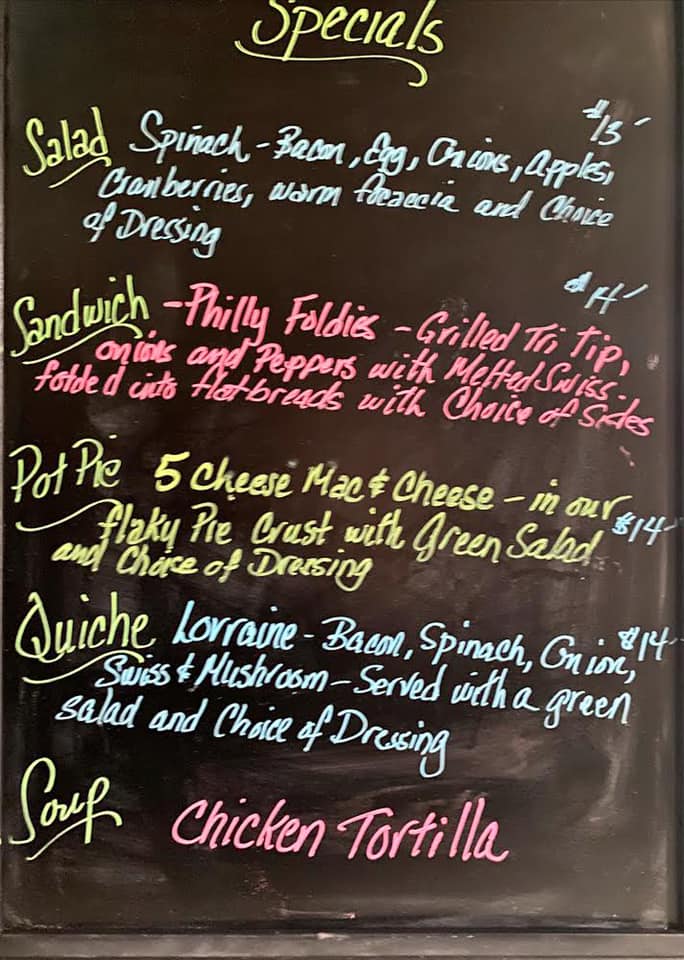 Specials
$13
Salad Spinach - Bacon, Egg, Onions, Apples,
Cranberries, warm focaccia and Choice
of Dressing
$14
Sandwich - Philly Foldies - Grilled Tri Tip,
onions and Peppers with Melted Swiss.
folded into flatbreads with Choice of Sides
Pot Pie 5 Cheese Mac & Cheese - in our
flaky Pie Crust with Green Salad $14
and Choice of Dressing
Quiche Lorraine - Bacon, Spinach, Onion, $14
Swiss & Mushroom - Served with a green
salad and Choice of Dressing
Soup Chicken Tortilla